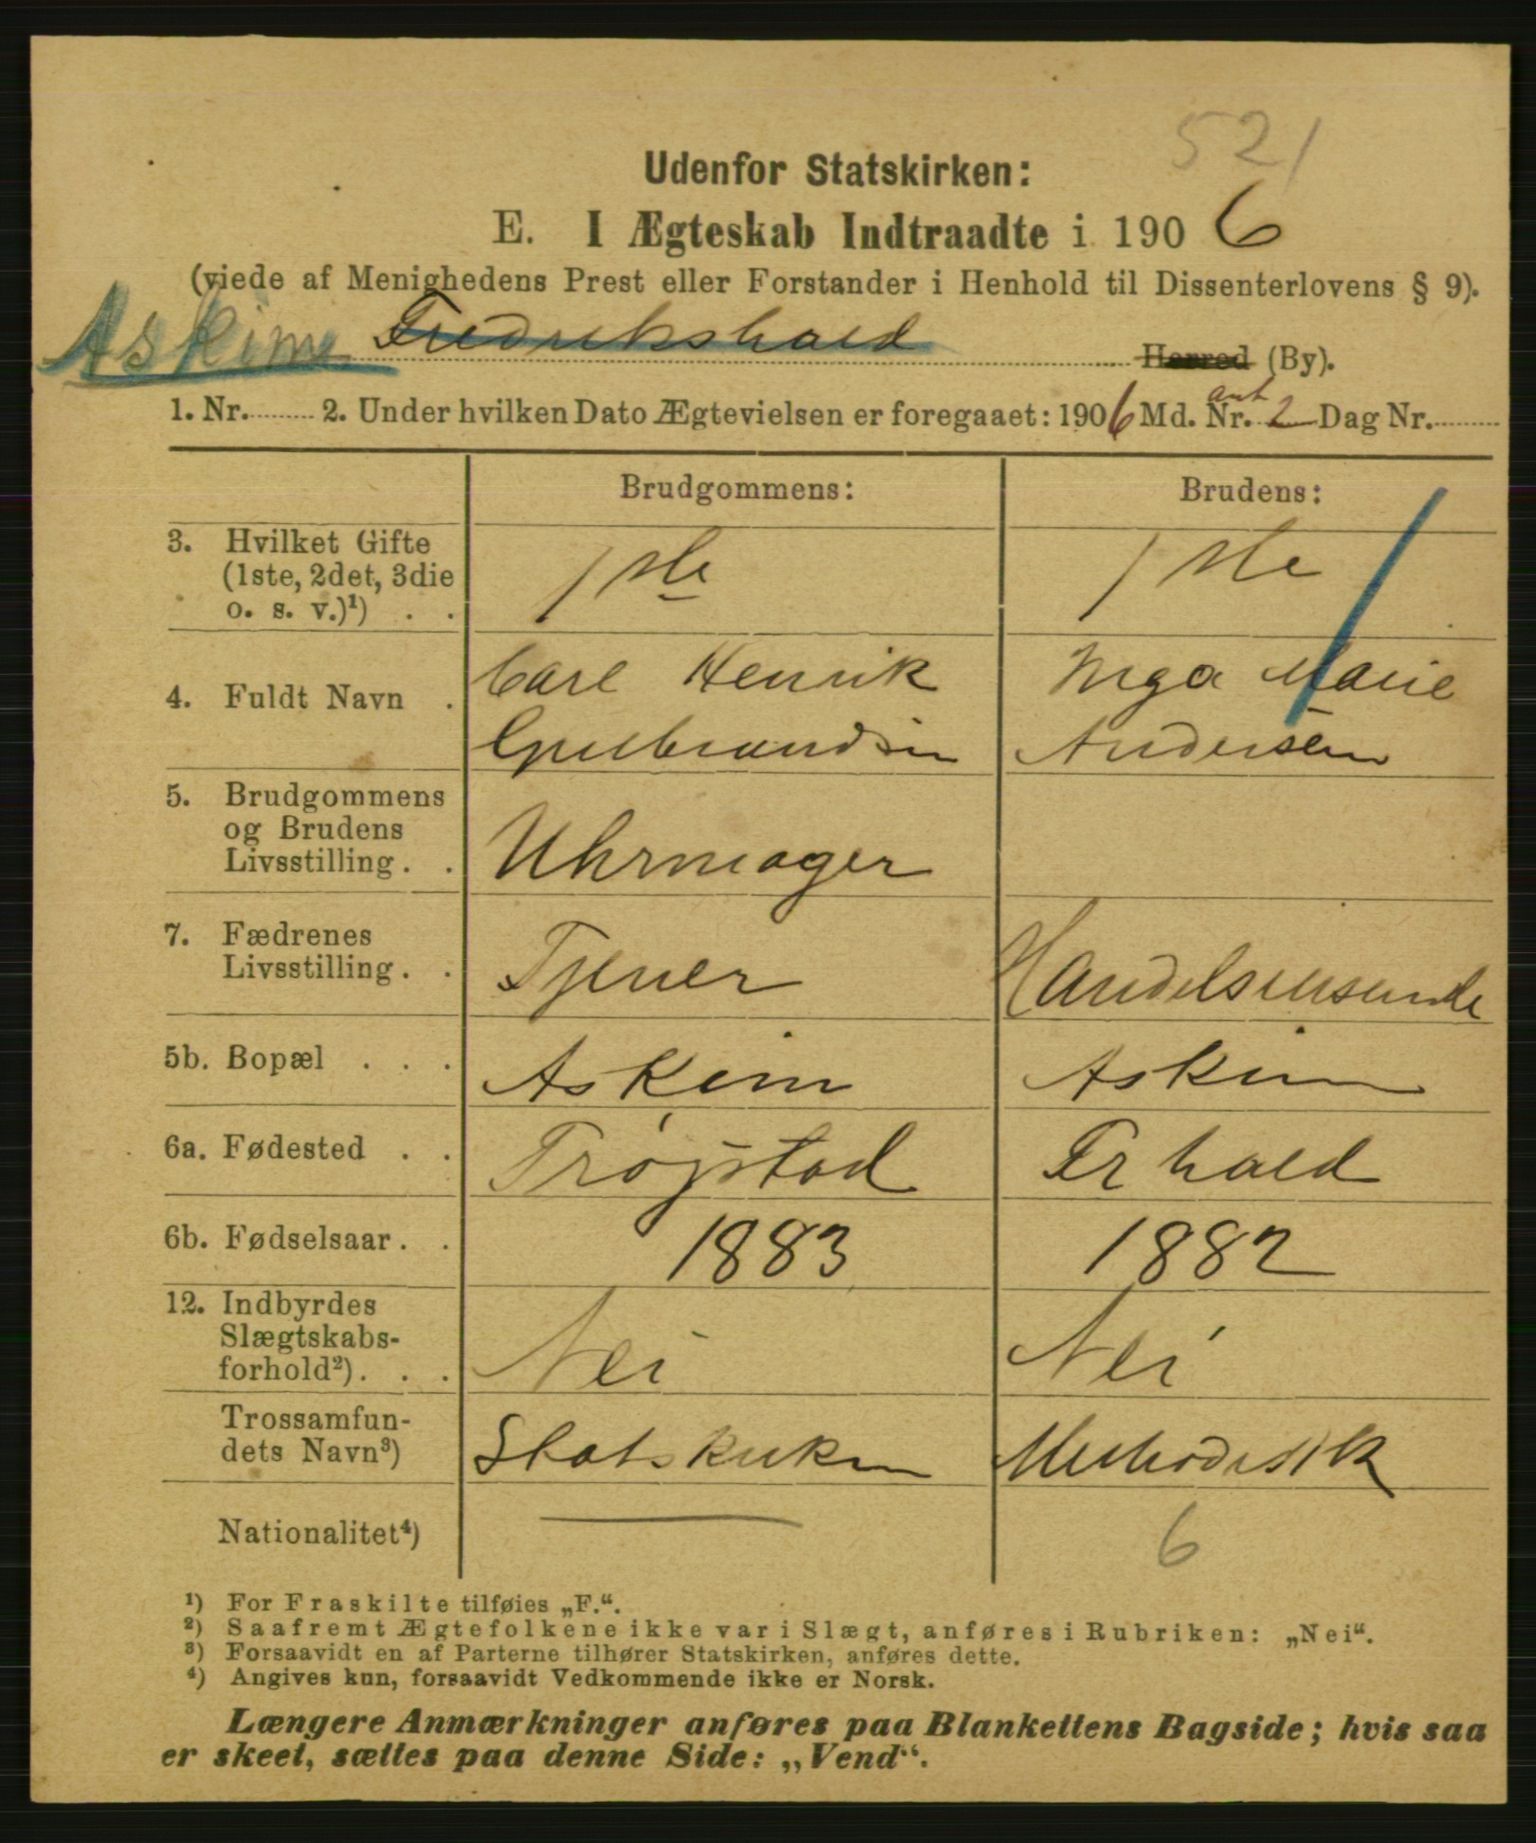 521
Udenfor Statskirken:
E. I Ægteskab Indtraadte i 1906
(viede af Menighedens Prest eller Forstander i Henhold til Dissenterlovens § 9).
Askim Fredrikshald Herred (By).
1. Nr. 2. Under hvilken Dato Ægtevielsen er foregaaet: 1906 Md. Nr. ant 2 Dag Nr.
Brudgommens: Brudens:
3. Hvilket Gifte
(1ste, 2det, 3die
o. s. v.)¹) . .
1ste 1ste
4. Fuldt Navn .
Carl Henrik
Gulbrandsen
Inga Marie
Andersen
5. Brudgommens
og Brudens
Livsstilling . .
Uhrmager
7. Fædrenes
Livsstilling . .
Tjener
5b. Bopæl . . . Askim Askim
6a. Fødested . . Trøgstad Frhald
6b. Fødselsaar . . 1883 1882
12. Indbyrdes
Slægtskabs-
forhold²) . . .
Nei Nei
Trossamfun-
dets Navn³)
Statskirken Methodistk
Nationalitet⁴) 6
¹) For Fraskilte tilføies „F.“.
²) Saafremt Ægtefolkene ikke var i Slægt, anføres i Rubriken: „Nei“.
³) Forsaavidt en af Parterne tilhører Statskirken, anføres dette.
⁴) Angives kun, forsaavidt Vedkommende ikke er Norsk.
Længere Anmærkninger anføres paa Blankettens Bagside; hvis saa
er skeet, sættes paa denne Side: „Vend“.